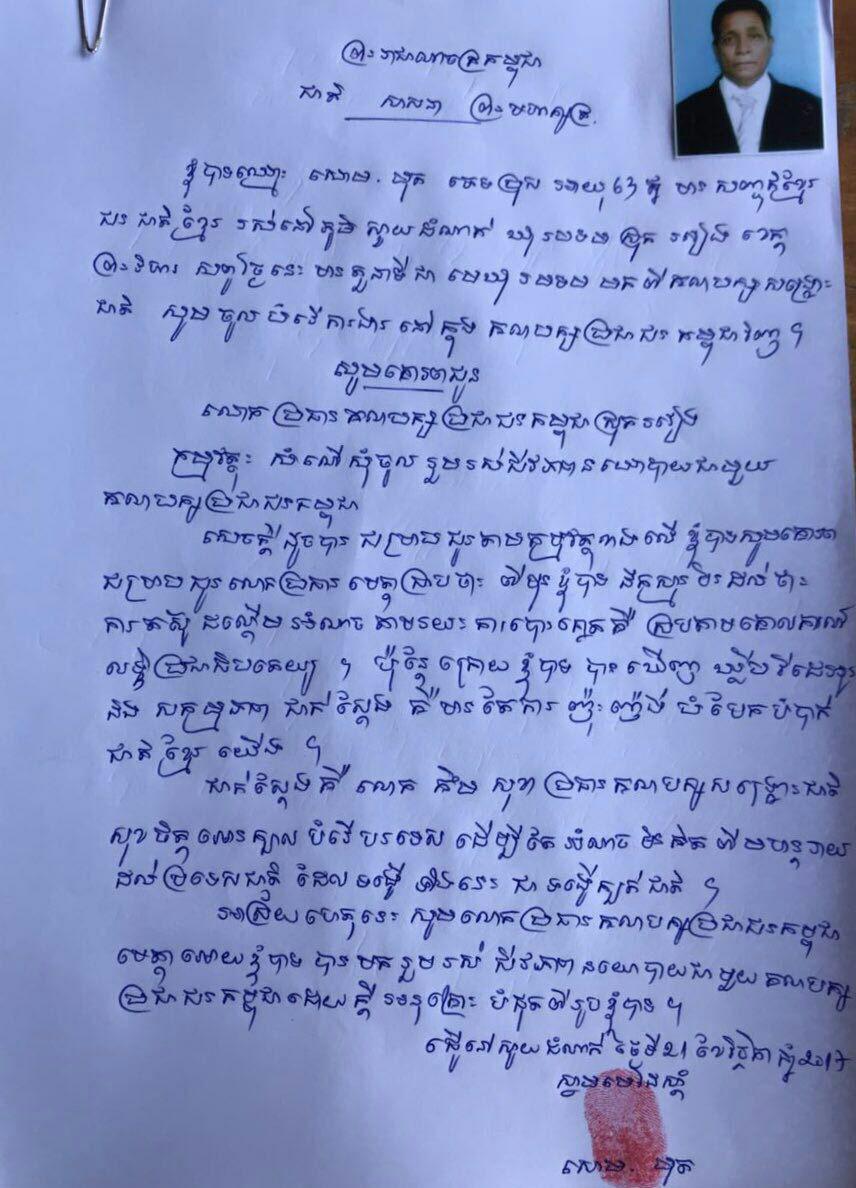 ព្រះរាជាណាចក្រកម្ពុជា
ជាតិ សាសនា ព្រះមហាក្សត្រ
ខ្ញុំបាទឈ្មោះ សោម. មុត ភេទប្រុស អាយុ 63 ឆ្នាំ មាន សញ្ជាតិខ្មែរ
ជន ជាតិខ្មែរ រស់នៅភូមិ ស្វាយដំណាក់ ឃុំ រមទម ស្រុក រវៀង ខេត្ត
ព្រះវិហារ សព្វថ្ងៃនេះ មានតួនាទីជា មេឃុំ រមទម មកពីគណបក្សសង្គ្រោះ
ជាតិ សូមចូល បំរើការងារ នៅក្នុង គណបក្សប្រជាជន កម្ពុជាវិញ ។
សូមគោរពជូន
លោកប្រធានគណបក្សប្រជាជនកម្ពុជាស្រុករវៀង
កម្មវត្ថុ: សំណើសុំចូល រួមរស់ជីវភាពនយោបាយជាមួយ
គណបក្សប្រជាជនកម្ពុជា
សេចក្តីដូចបាន ជម្រាបជូនតាមកម្មវត្ថុខាងលើ ខ្ញុំបាទសូមគោរព
ជម្រាបជូនលោកប្រធាន មេត្តាជ្រាបថា: ពីមុនខ្ញុំបាទ នឹកស្មានមិនដល់ថា:
ការតស៊ូ ដណ្តើមអំណាច តាមរយ: ការបោះឆ្នោតគឺ ស្របតាមគោលការណ៍
លទ្ធិប្រជាធិបតេយ្យ ។ ប៉ុន្តែក្រោយ ខ្ញុំបាទ បានឃើញ ឃ្លីបវីដេអូ
និង សកម្មភាព ជាក់ស្តែង គឺមានតែការ ញុះញ៉ង់ បំបែកបំបាក់
ជាតិខ្មែរ យើង ។
ជាក់ស្តែងគឺ លោក កឹម សុខា ប្រធានគណបក្សសង្គ្រោះជាតិ
សុខចិត្តលក់ក្បាល បំរើបរទេស ដើម្បីតែ អំណាច មិនគិត ពីមហន្តរាយ
ដល់ប្រទេសជាតិ ដែលទង្វើ ទាំងនេះ ជាទង្វើក្បត់ជាតិ ។
អាស្រ័យហេតុនេះ សូមលោកប្រធានគណបក្សប្រជាជនកម្ពុជា
មេត្តាអោយខ្ញុំបាទ បានមករួមរស់ ជីវភាពនយោបាយជាមួយគណបក្ស
ប្រជាជនកម្ពុជាដោយក្តីអនុគ្រោះ បំផុតពីរូបខ្ញុំបាទ ។
ធ្វើនៅស្វាយដំណាក់ ថ្ងៃទី21 ខែវិច្ឆិកា ឆ្នាំ2017
ស្នាមមេដៃស្តាំ
សោម. មុត